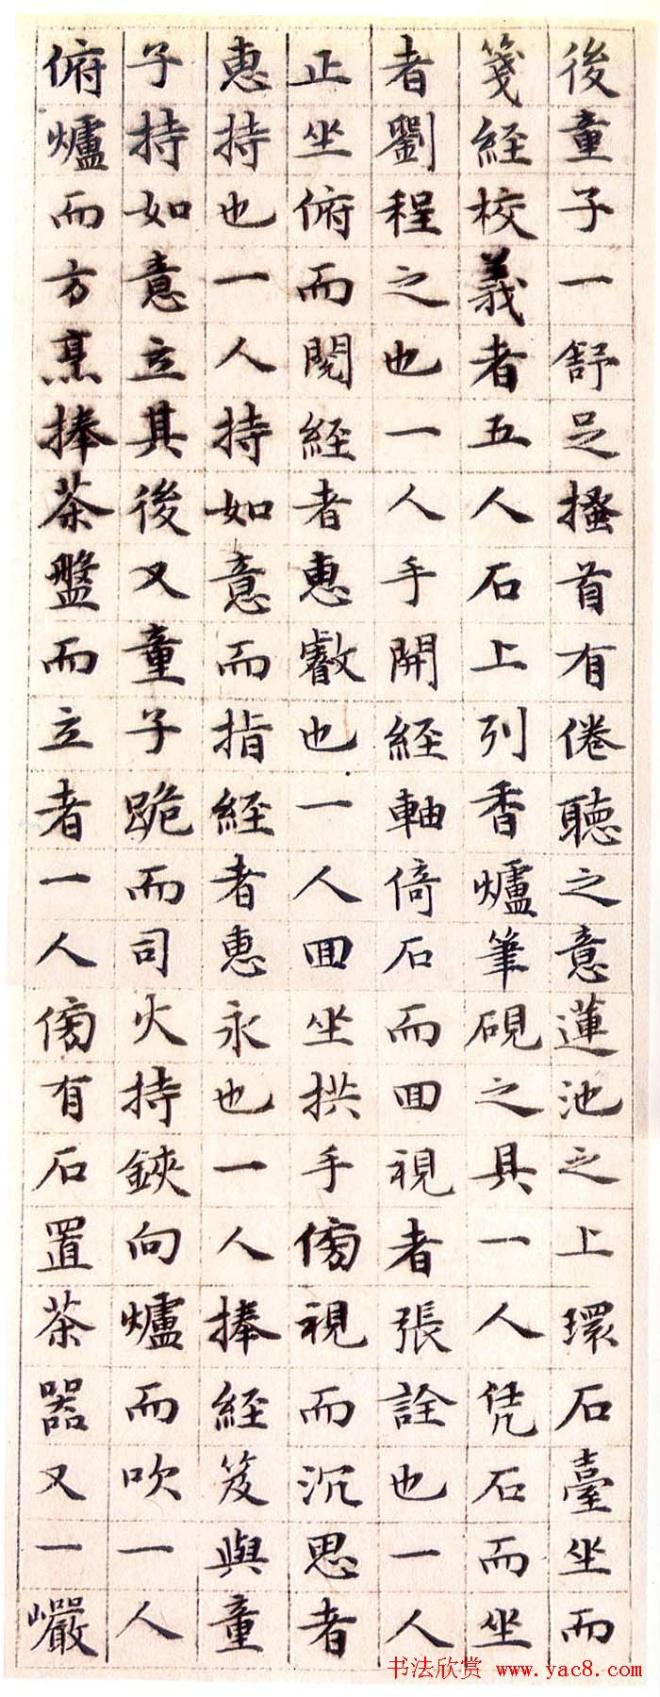 後童子一舒足搔首有倦聽之意蓮池之上環石臺坐而
箋經校義者五人石上列香爐筆硯之具一人凭石而坐
者劉程之也一人手開經軸倚石而回視者張詮也一人
正坐俯而閱經者惠叡也一人回坐拱手傍視而沉思者
惠持也一人持如意而指經者惠永也一人捧經笈與童
子持如意立其後又童子跪而司火持鋏向爐而吹一人
俯爐而方烹捧茶盤而立者一人傍有石置茶器又一巖
书法欣赏 www.yac8.com